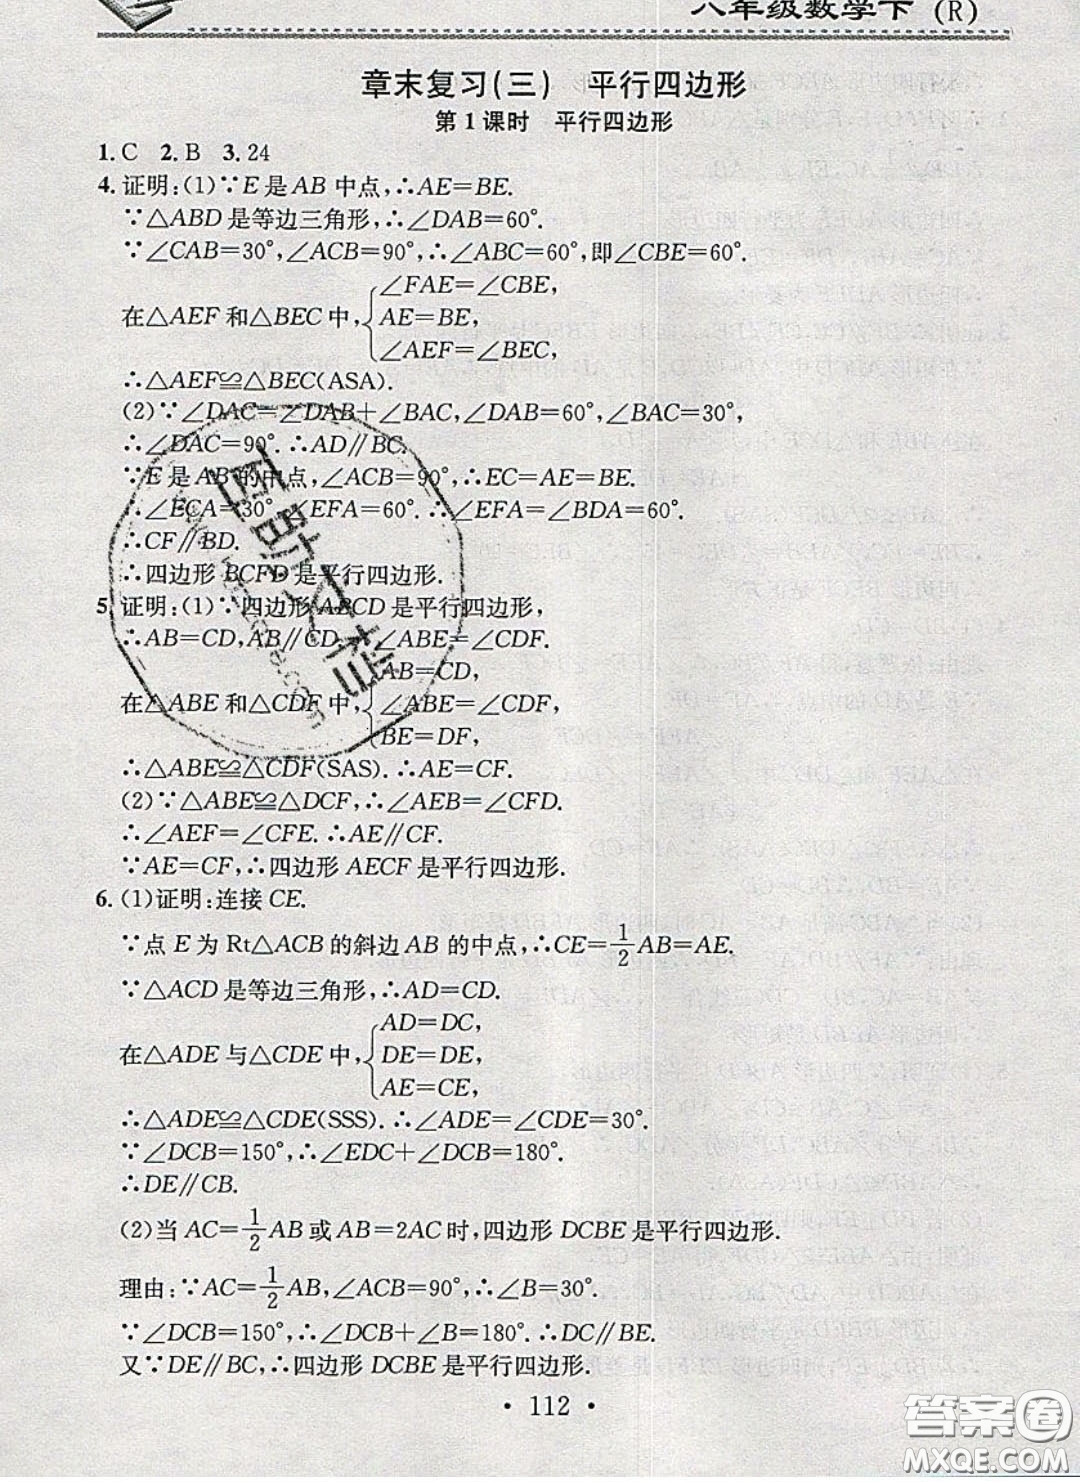 八年级数学下(R)
章末复习(三) 平行四边形
第1课时 平行四边形
1.C 2.B 3.24
4.证明:(1)∵E是AB中点,∴AE=BE.
∵△ABD是等边三角形,∴∠DAB=60°.
∵∠CAB=30°,∠ACB=90°,∴∠ABC=60°,即∠CBE=60°.
∠FAE=∠CBE,
在△AEF和△BEC中,{AE=BE,
∠AEF=∠BEC,
∴△AEF≌△BEC(ASA).
(2)∵∠DAC=∠DAB+∠BAC,∠DAB=60°,∠BAC=30°,
∴∠DAC=90°.∴AD∥BC.
∵E是AB的中点,∠ACB=90°,∴EC=AE=BE.
∴∠ECA=30°,∠EFA=60°.∴∠EFA=∠BDA=60°.
∴CF∥BD.
∴四边形BCFD是平行四边形.
5.证明:(1)∵四边形ABCD是平行四边形,
∴AB=CD,AB∥CD.∴∠ABE=∠CDF.
AB=CD,
在△ABE和△CDF中,{∠ABE=∠CDF,
BE=DF,
∴△ABE≌△CDF(SAS).∴AE=CF.
(2)∵△ABE≌△DCF,∴∠AEB=∠CFD.
∴∠AEF=∠CFE.∴AE∥CF.
∵AE=CF,∴四边形AECF是平行四边形.
6.(1)证明:连接CE.
∵点E为Rt△ACB的斜边AB的中点,∴CE=1/2AB=AE.
∵△ACD是等边三角形,∴AD=CD.
AD=DC,
在△ADE与△CDE中,{DE=DE,
AE=CE,
∴△ADE≌△CDE(SSS).∴∠ADE=∠CDE=30°.
∵∠DCB=150°,∴∠EDC+∠DCB=180°.
∴DE∥CB.
(2)当AC=1/2AB或AB=2AC时,四边形DCBE是平行四边形.
理由:∵AC=1/2AB,∠ACB=90°,∴∠B=30°.
∵∠DCB=150°,∴∠DCB+∠B=180°.∴DC∥BE.
又∵DE∥BC,∴四边形DCBE是平行四边形.
·112·
答案圈
MXQE.COM